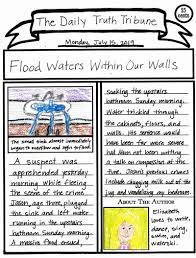 The Daily Truth Tribune
25 cents
Monday, July 15, 2019
Flood Waters Within Our Walls
The small sink almost immediately
began to overflow and
A suspect was
apprehended yesterday
morning while fleeing
the scene of the crime.
Jason, age three, plugged
the sink and left water
running in the upstairs
bathroom Sunday morning.
A massive flood ensued,
soaking the upstairs
bathroom Sunday morning.
Water trickled through
the cabinets, floors, and
walls. His consequences
could have been more severe
had Jason not been writing
a talk on compassion at the
time. Jason's previous crimes
include changing milk out of the
jug and vandalism, and
About The Author
Elizabeth
loves to write,
dance, sing,
swim, and